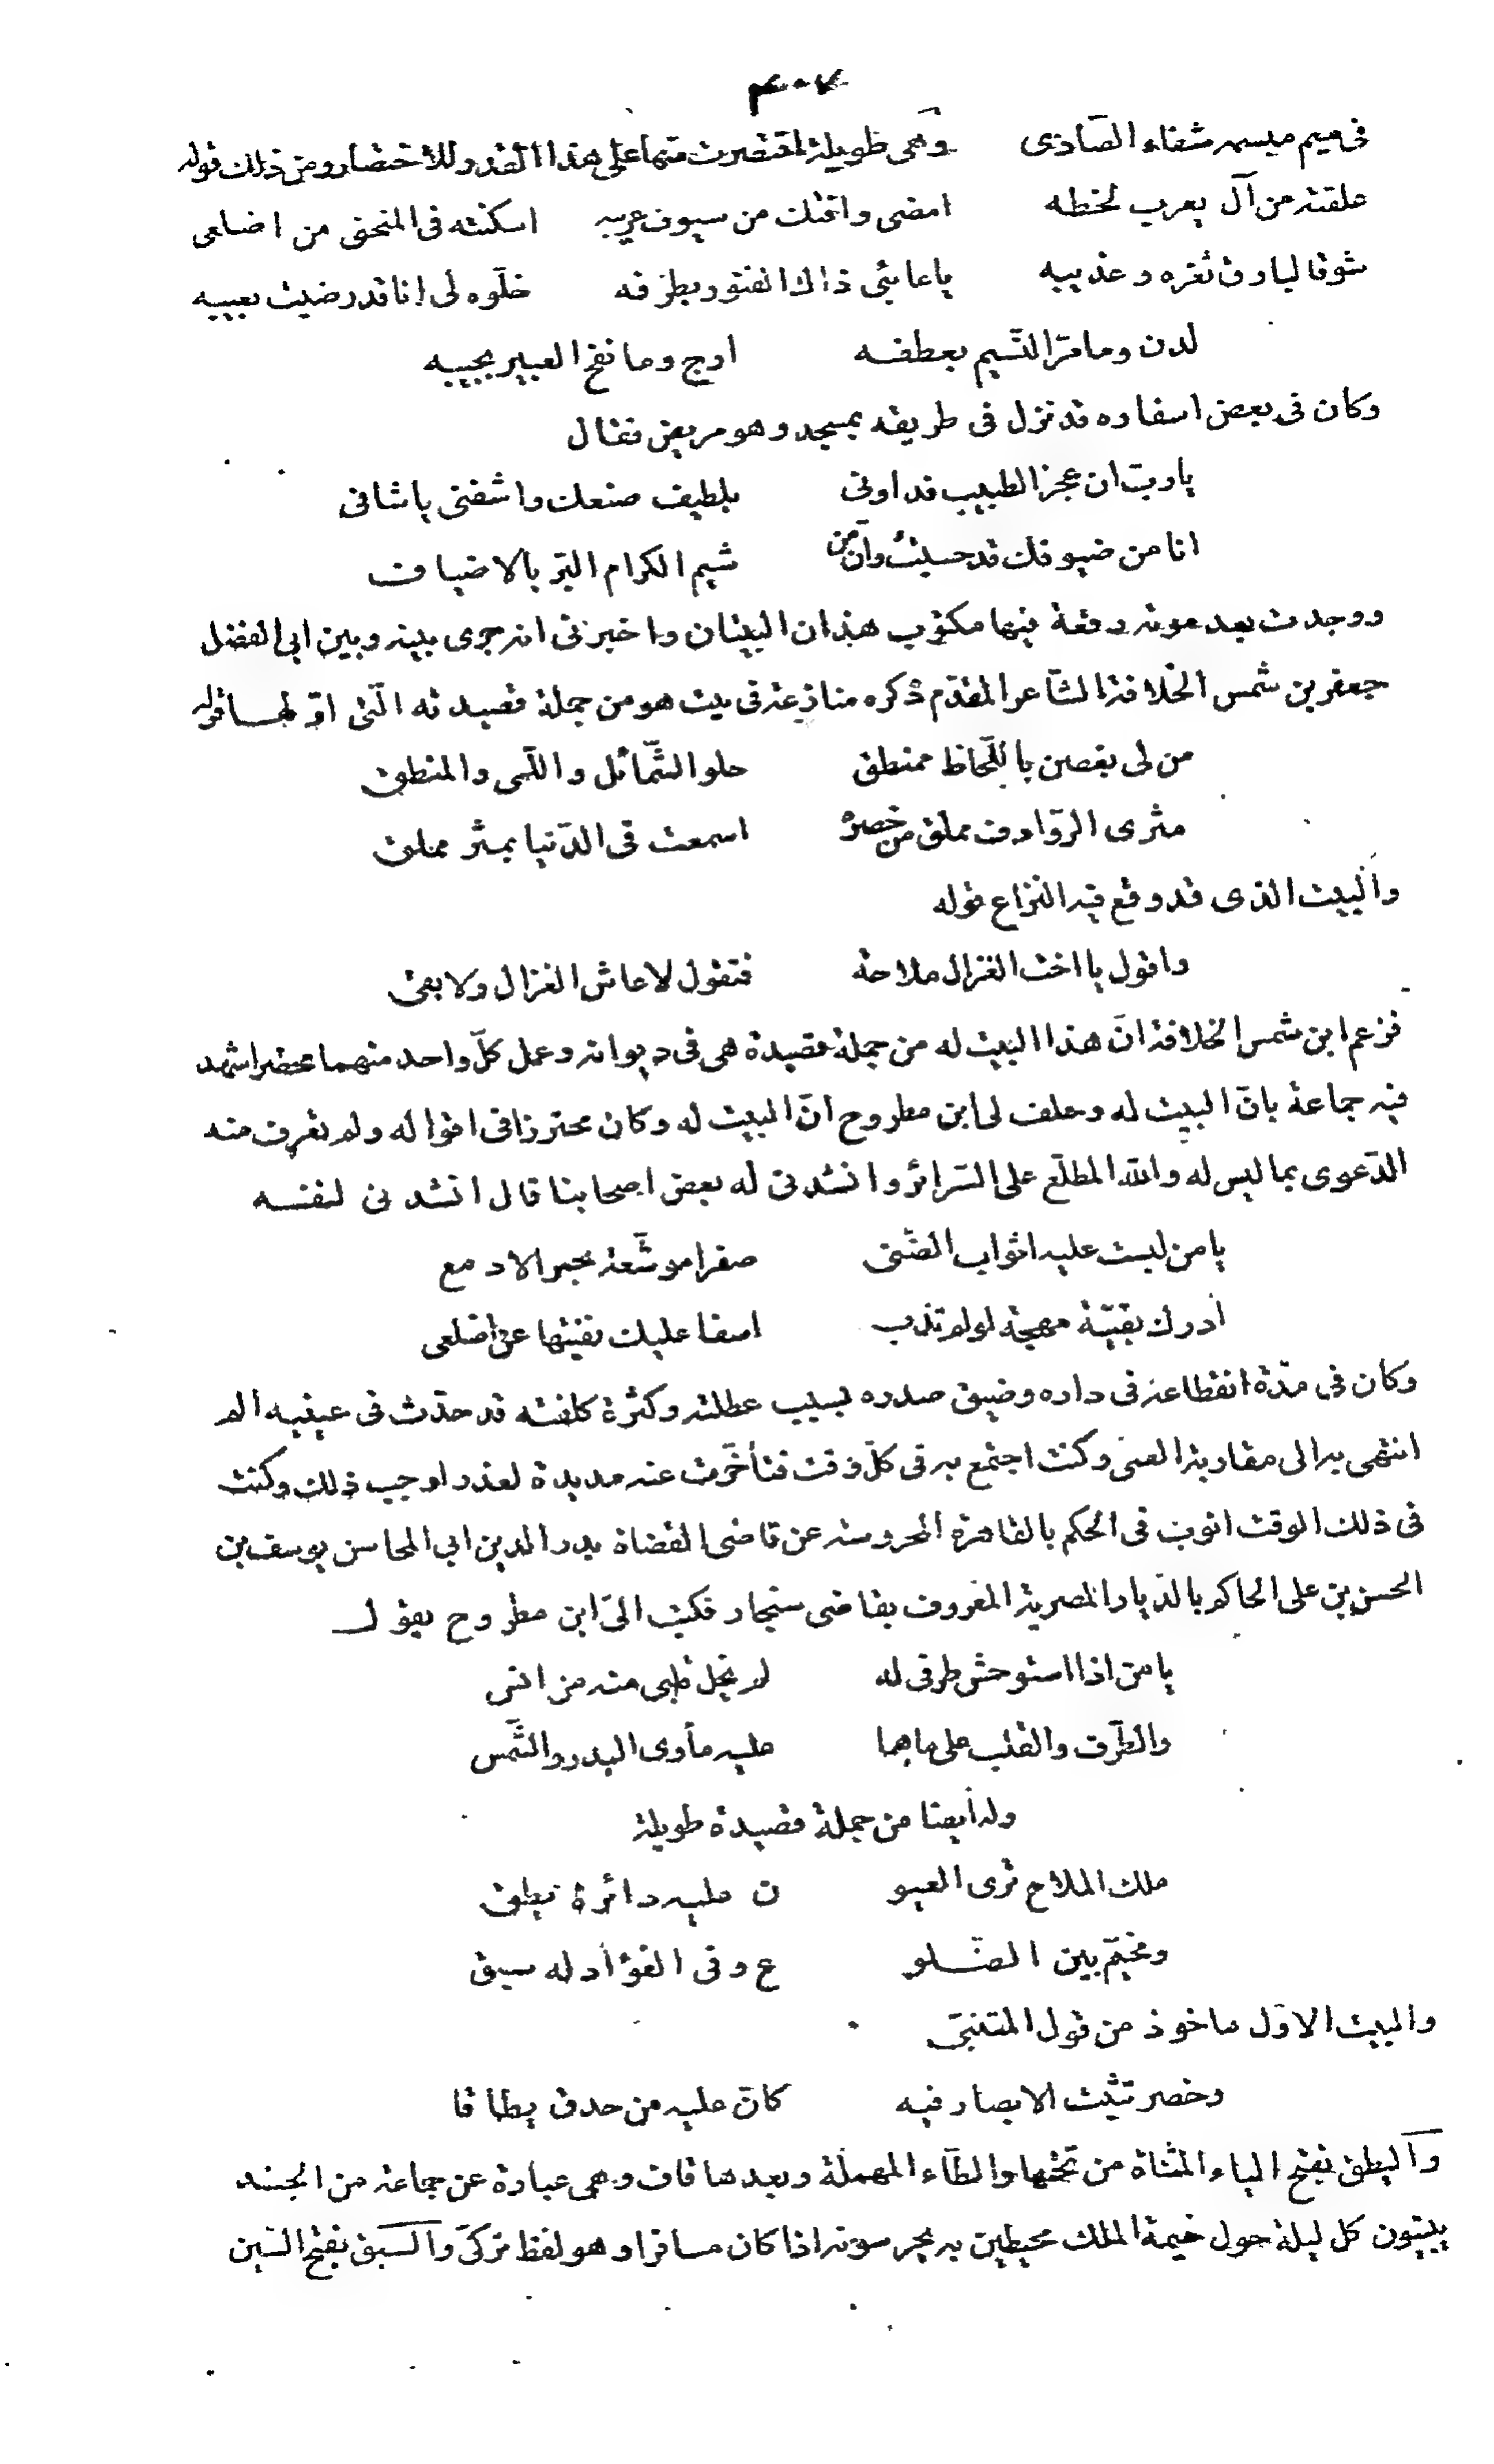 ٤٠٧
فى ميم مبسمه شفاء الصادى وهى طويلة اقتصرت منها على هذا القدر للاختصار ومن ذلك قوله
علقته من آل يعرب لحظه امضى وافتك من سيوف عريبه اسكنته فى المنحنى من اضلعى
شوقا لبارق ثغره وعذيبه ياعائبى ذاك الفتور بطرفه خلّوه لى انا قد رضيت بعيبه
لدن وما مرّ النّسيم بعطفه ارج وما نفخ العبير بجيبه
وكان فى بعض اسفاره قد نزل فى طريقه بمسجد وهو مريض فقال
يا ربّ ان عجز الطبيب فداونى بلطيف صنعك واشفنى ياشافى
انا من ضيوفك قد حسبتُ وانّ من شيم الكرام البرّ بالاضياف
ووجدت بعد موته رقعة فيها مكتوب هذان البيتان واخبرنى انه جرى بينه وبين ابى الفضل
جعفر بن شمس الخلافة الشاعر المقدّم ذكره منازعة فى بيت هو من جملة قصيدته الّتى اوّلها قوله
من لى بغصن باللّحاظ ممنطق حلو الشّمائل واللّمى والمنطق
مثرى الرّوادف مملق من خصره اسمعت فى الدّنيا بمثر مملق
والبيت الذى قد وقع فيه النزاع قوله
واقول يا اخت الغزال ملاحة فتقول لا عاش الغزال ولا بقى
فزعم ابن شمس الخلافة انّ هذا البيت له من جملة قصيدة هى فى ديوانه وعمل كلّ واحد منهما محضرا شهد
فيه جماعة بانّ البيت له وحلف لى ابن مطروح انّ البيت له وكان محترزا فى اقواله ولم تعرف منه
الدّعوى بما ليس له والله المطلّع على السّرائر وانشدنى له بعض اصحابنا قال انشدنى لنفسه
يا من لبست عليه اثواب الضّنى صفرا موشّعة بحمر الادمع
أدرك بقيّة مهجة لو لم تذب اسفا عليك نفيتها عن اضلعى
وكان فى مدّة انقطاعه فى داره وضيق صدره بسبب عطلته وكثرة كلفته قد حدّث فى عينيه الم
انتهى به الى مقاربة العمى وكنت اجتمع به فى كلّ وقت فتأخّرت عنه مديدة لعذر اوجب ذلك وكنت
فى ذلك الوقت انوب فى الحكم بالقاهرة المحروسة عن قاضى القضاة بدر الدين ابى المحاسن يوسف بن
الحسن بن على الحاكم بالديار المصرية المعروف بقاضى سنجار فكتب الىّ ابن مطروح يقول
يا من اذا استوحش طرفى له لم يخل قلبى منه من انس
والطّرف والقلب على ماهما عليه مأوى البدر والشّمس
وله أيضا من جملة قصيدة طويلة
ملك الملاح ترى العيو ن عليه دائرة يطق
ومخيّم بين الضّلو ع وفى الفؤاد له سبق
والبيت الاوّل ماخوذ من قول المتنبّى
وخصر تثبت الابصار فيه كانّ عليه من حدق نطاقا
واليطق بفتح الياء المثناة من تحتها والطّاء المهملة وبعدها قاف وهى عبارة عن جماعة من الجند
يبيتون كل ليلة حول خيمة الملك محيطين به يحرسونه اذا كان مسافرا وهو لفظ تركىّ والسّبق بفتح السّين